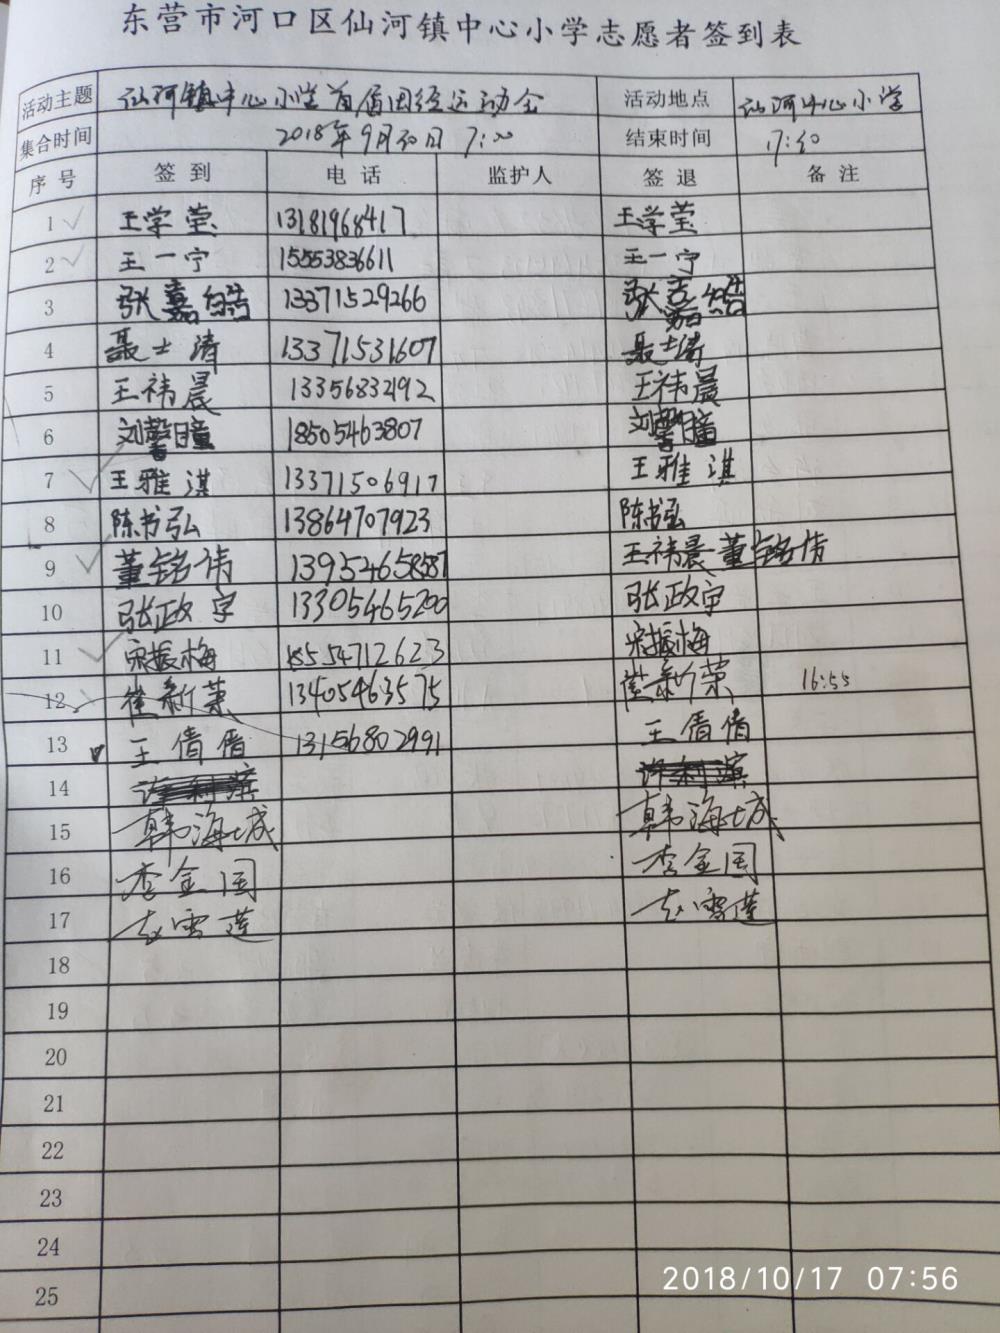 东营市河口区仙河镇中心小学志愿者签到表
活动主题 仙河镇中心小学首届田径运动会 活动地点 仙河中心小学
集合时间 2018年9月30日 7:00 结束时间 17:50
序号 签到 电话 监护人 签退 备注
1 王学莹 13181968417 王学莹
2 王一宁 15553836611 王一宁
3 张嘉皓 13371529266 张嘉皓
4 聂士清 13371531607 聂士清
5 王祎晨 13356832192 王祎晨
6 刘馨瞳 18505463807 刘馨瞳
7 王雅淇 13371506917 王雅淇
8 陈书弘 13864707923 陈书弘
9 董铭伟 13954658587 王祎晨 董铭伟
10 张政宇 13305465200 张政宇
11 宋振梅 18554712623 宋振梅
12 崔新荣 13405463575 崔新荣 16:55
13 王倩倩 13156802991 王倩倩
14
15 韩海城 韩海城
16 李金国 李金国
17 赵雪莲 赵雪莲
18
19
20
21
22
23
24
25
2018/10/17 07:56